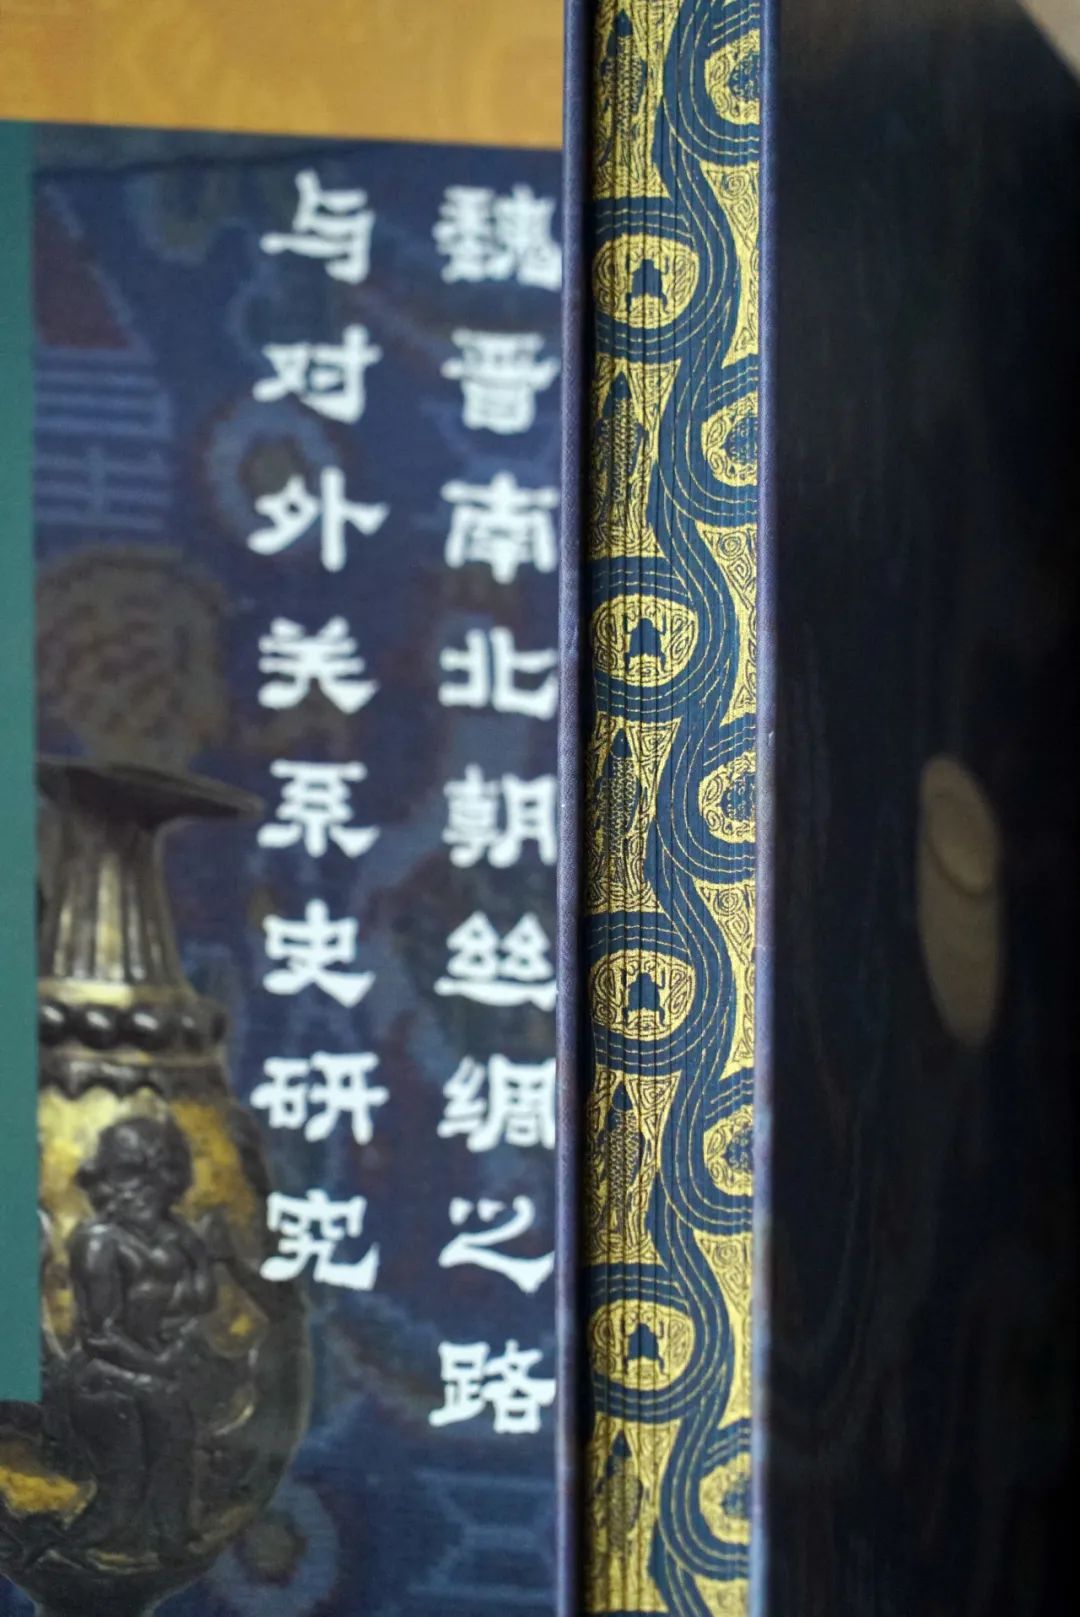 魏晋南北朝丝绸之路
与对外关系史研究